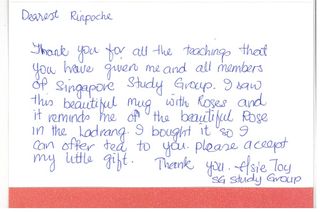 Dearest Rinpoche
Thank you for all the teachings that
you have given me and all members
of Singapore Study Group. I saw
this beautiful mug with Roses and
it reminds me of the beautiful Rose
in the Ladrang. I bought it so I
can offer tea to you. please accept
my little gift. Thank you. Elsie Toy
SG Study Group